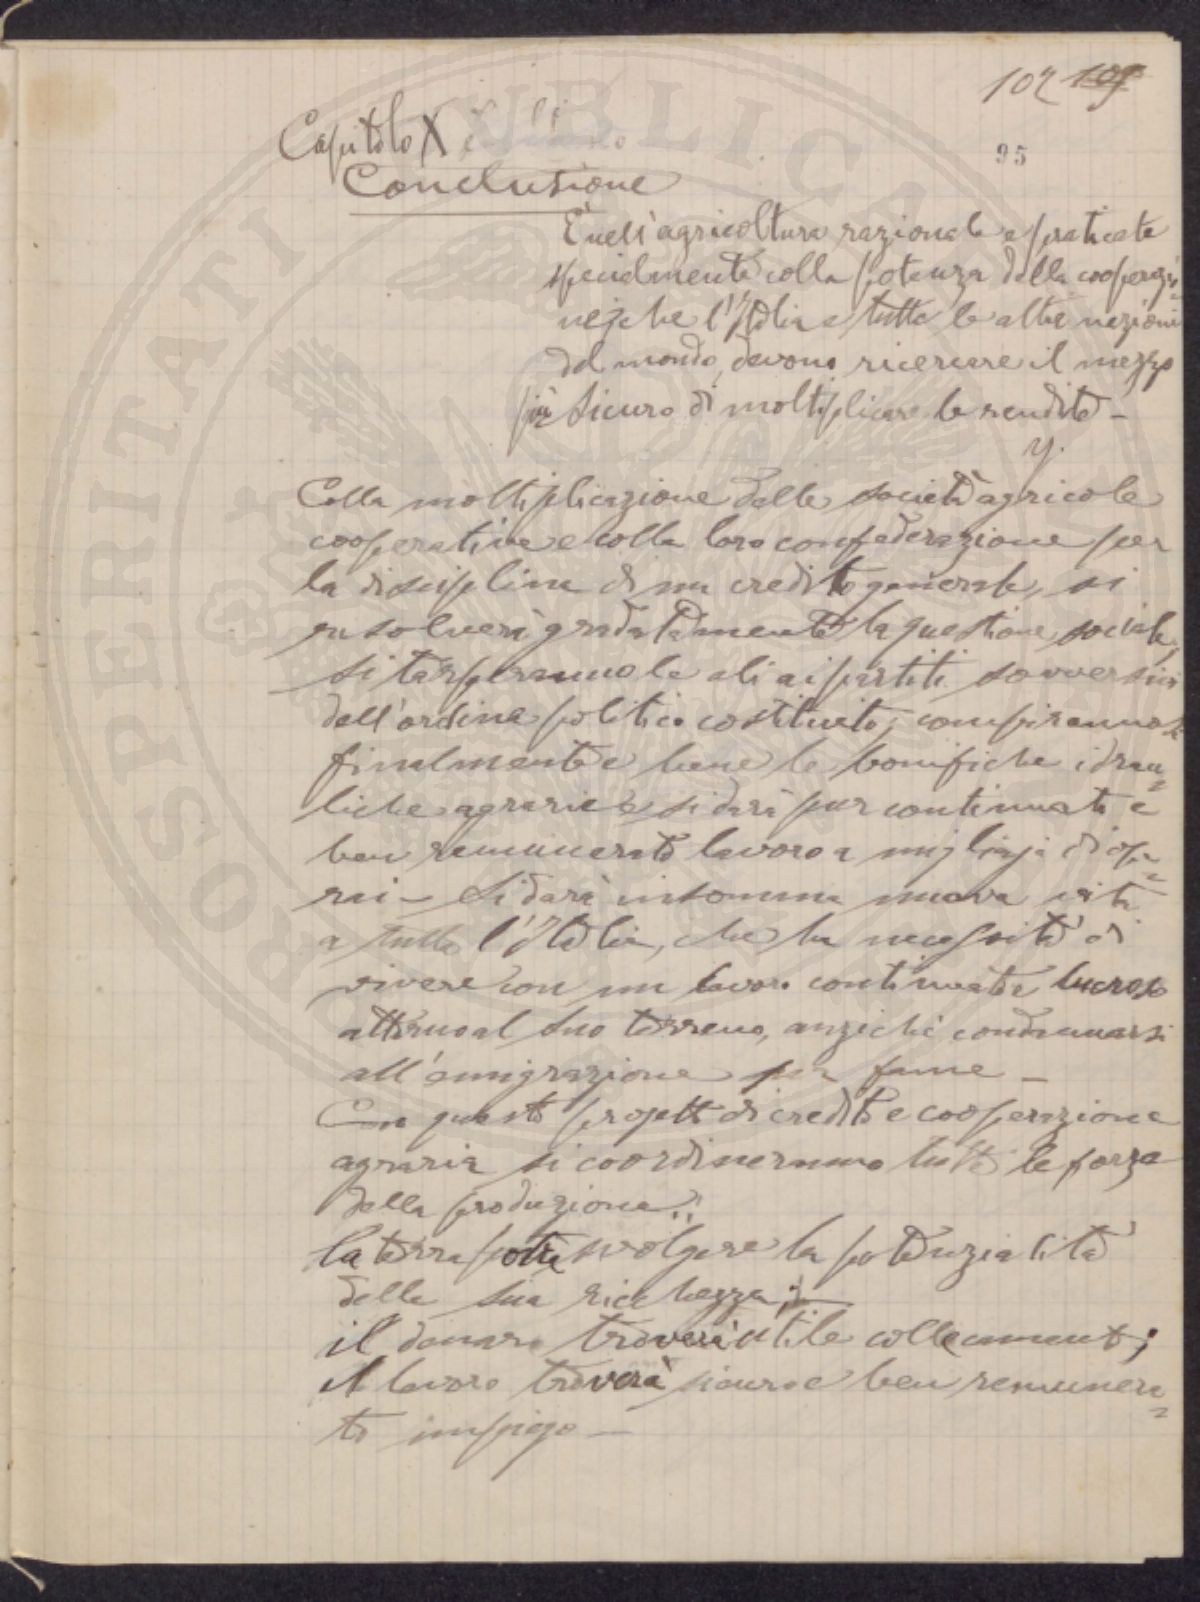 102 109
95
Capitolo X
Conclusione
È nell'agricoltura razionale e praticata
specialmente colla potenza della cooperazio=
ne, che l'Italia e tutte le altre nazioni
del mondo, devono ricercare il mezzo
più sicuro di moltiplicare le rendite -
y.
Colla moltiplicazione delle società agricole
cooperative e colla loro confederazione per
la disciplina di un credito generale, si
risolverà gradatamente la questione sociale,
si tarperanno le ali ai partiti sovversivi
dell'ordine politico costituito; compirannosi
finalmente e bene le bonifiche idrau=
liche agrarie e si darà pur continuato e
ben remunerato lavoro a migliaja di ope=
rai - Si darà insomma nuova vita
a tutta l'Italia, che ha necessità di
vivere con un lavoro continuato e lucroso
attorno al suo terreno, anzichè condannarsi
all'emigrazione per fame -
Con questo progetto di credito e cooperazione
agraria si coordineranno tutte le forze
della produzione:
la terra potrà svolgere la potenzialità
della sua ricchezza;
il denaro troverà utile collocamento;
il lavoro troverà sicuro e ben remunera=
to impiego -
PROSPERITATI PUBLICAE